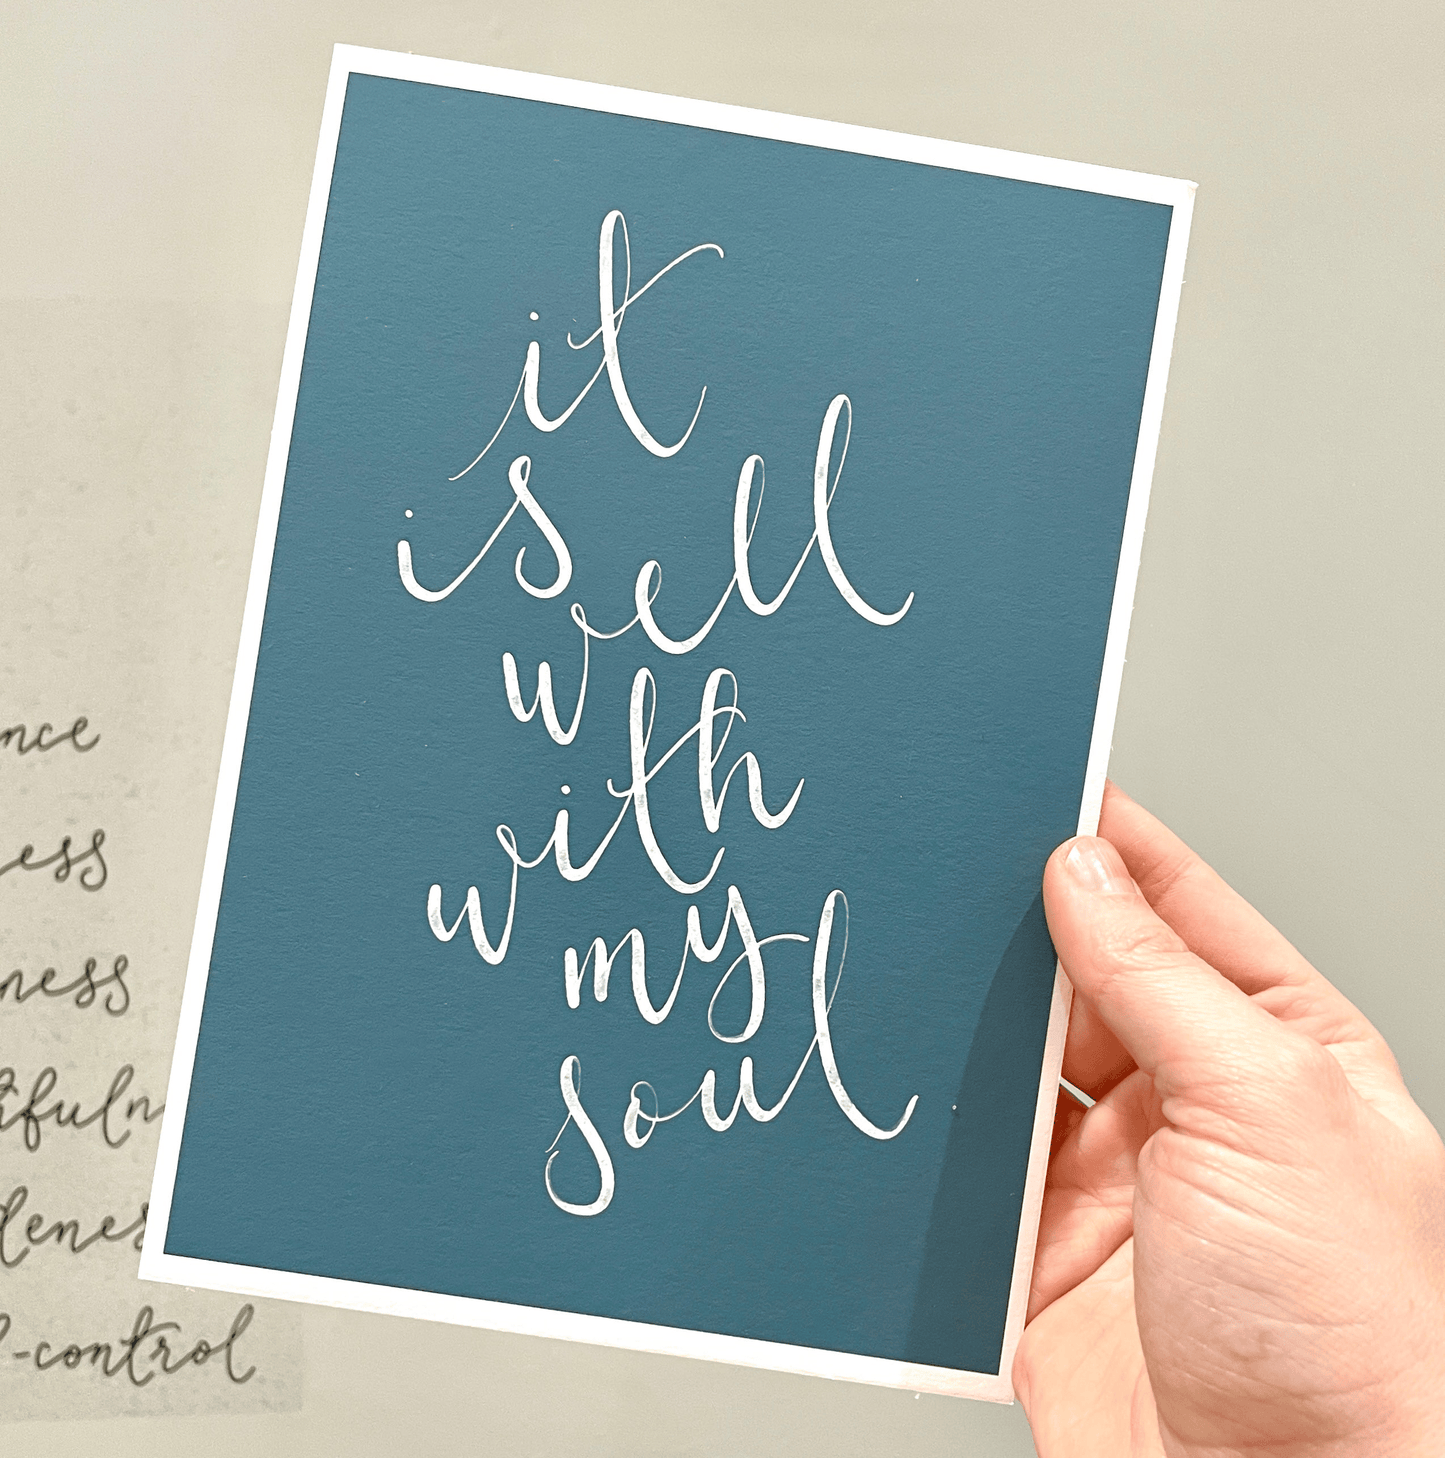 it
is
well
with
my
soul
nce
ess
ness
ifuln
lenes
-control